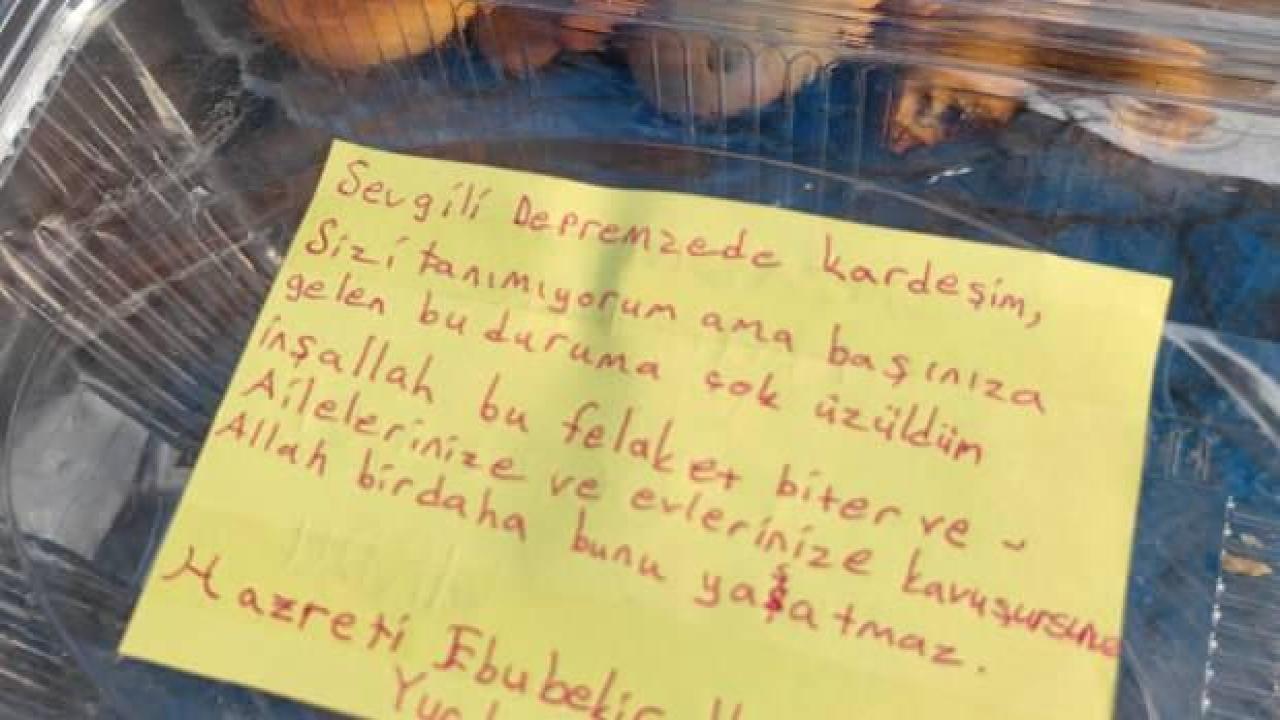 Sevgili Depremzede kardeşim,
Sizi tanımıyorum ama başınıza
gelen bu duruma çok üzüldüm
inşallah bu felaket biter ve -
Ailelerinize ve evlerinize kavuşursunuz
Allah birdaha bunu yaşatmaz.
Hazreti Ebubekir